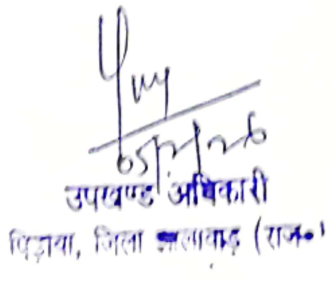 05/2/26
उपखण्ड अधिकारी
पिड़ावा, जिला झालावाड़ (राज०)